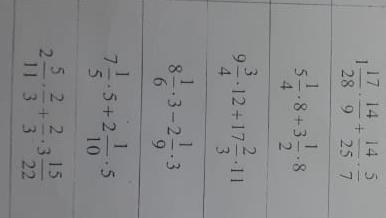 1 17/28 · 14/9 + 14/25 · 5/7
5 1/4 · 8 + 3 1/2 · 8
9 3/4 · 12 + 17 2/3 · 11
8 1/6 · 3 − 2 1/9 · 3
7 1/5 · 5 + 2 1/10 · 5
2 5/11 · 2/3 + 2/3 · 3 15/22